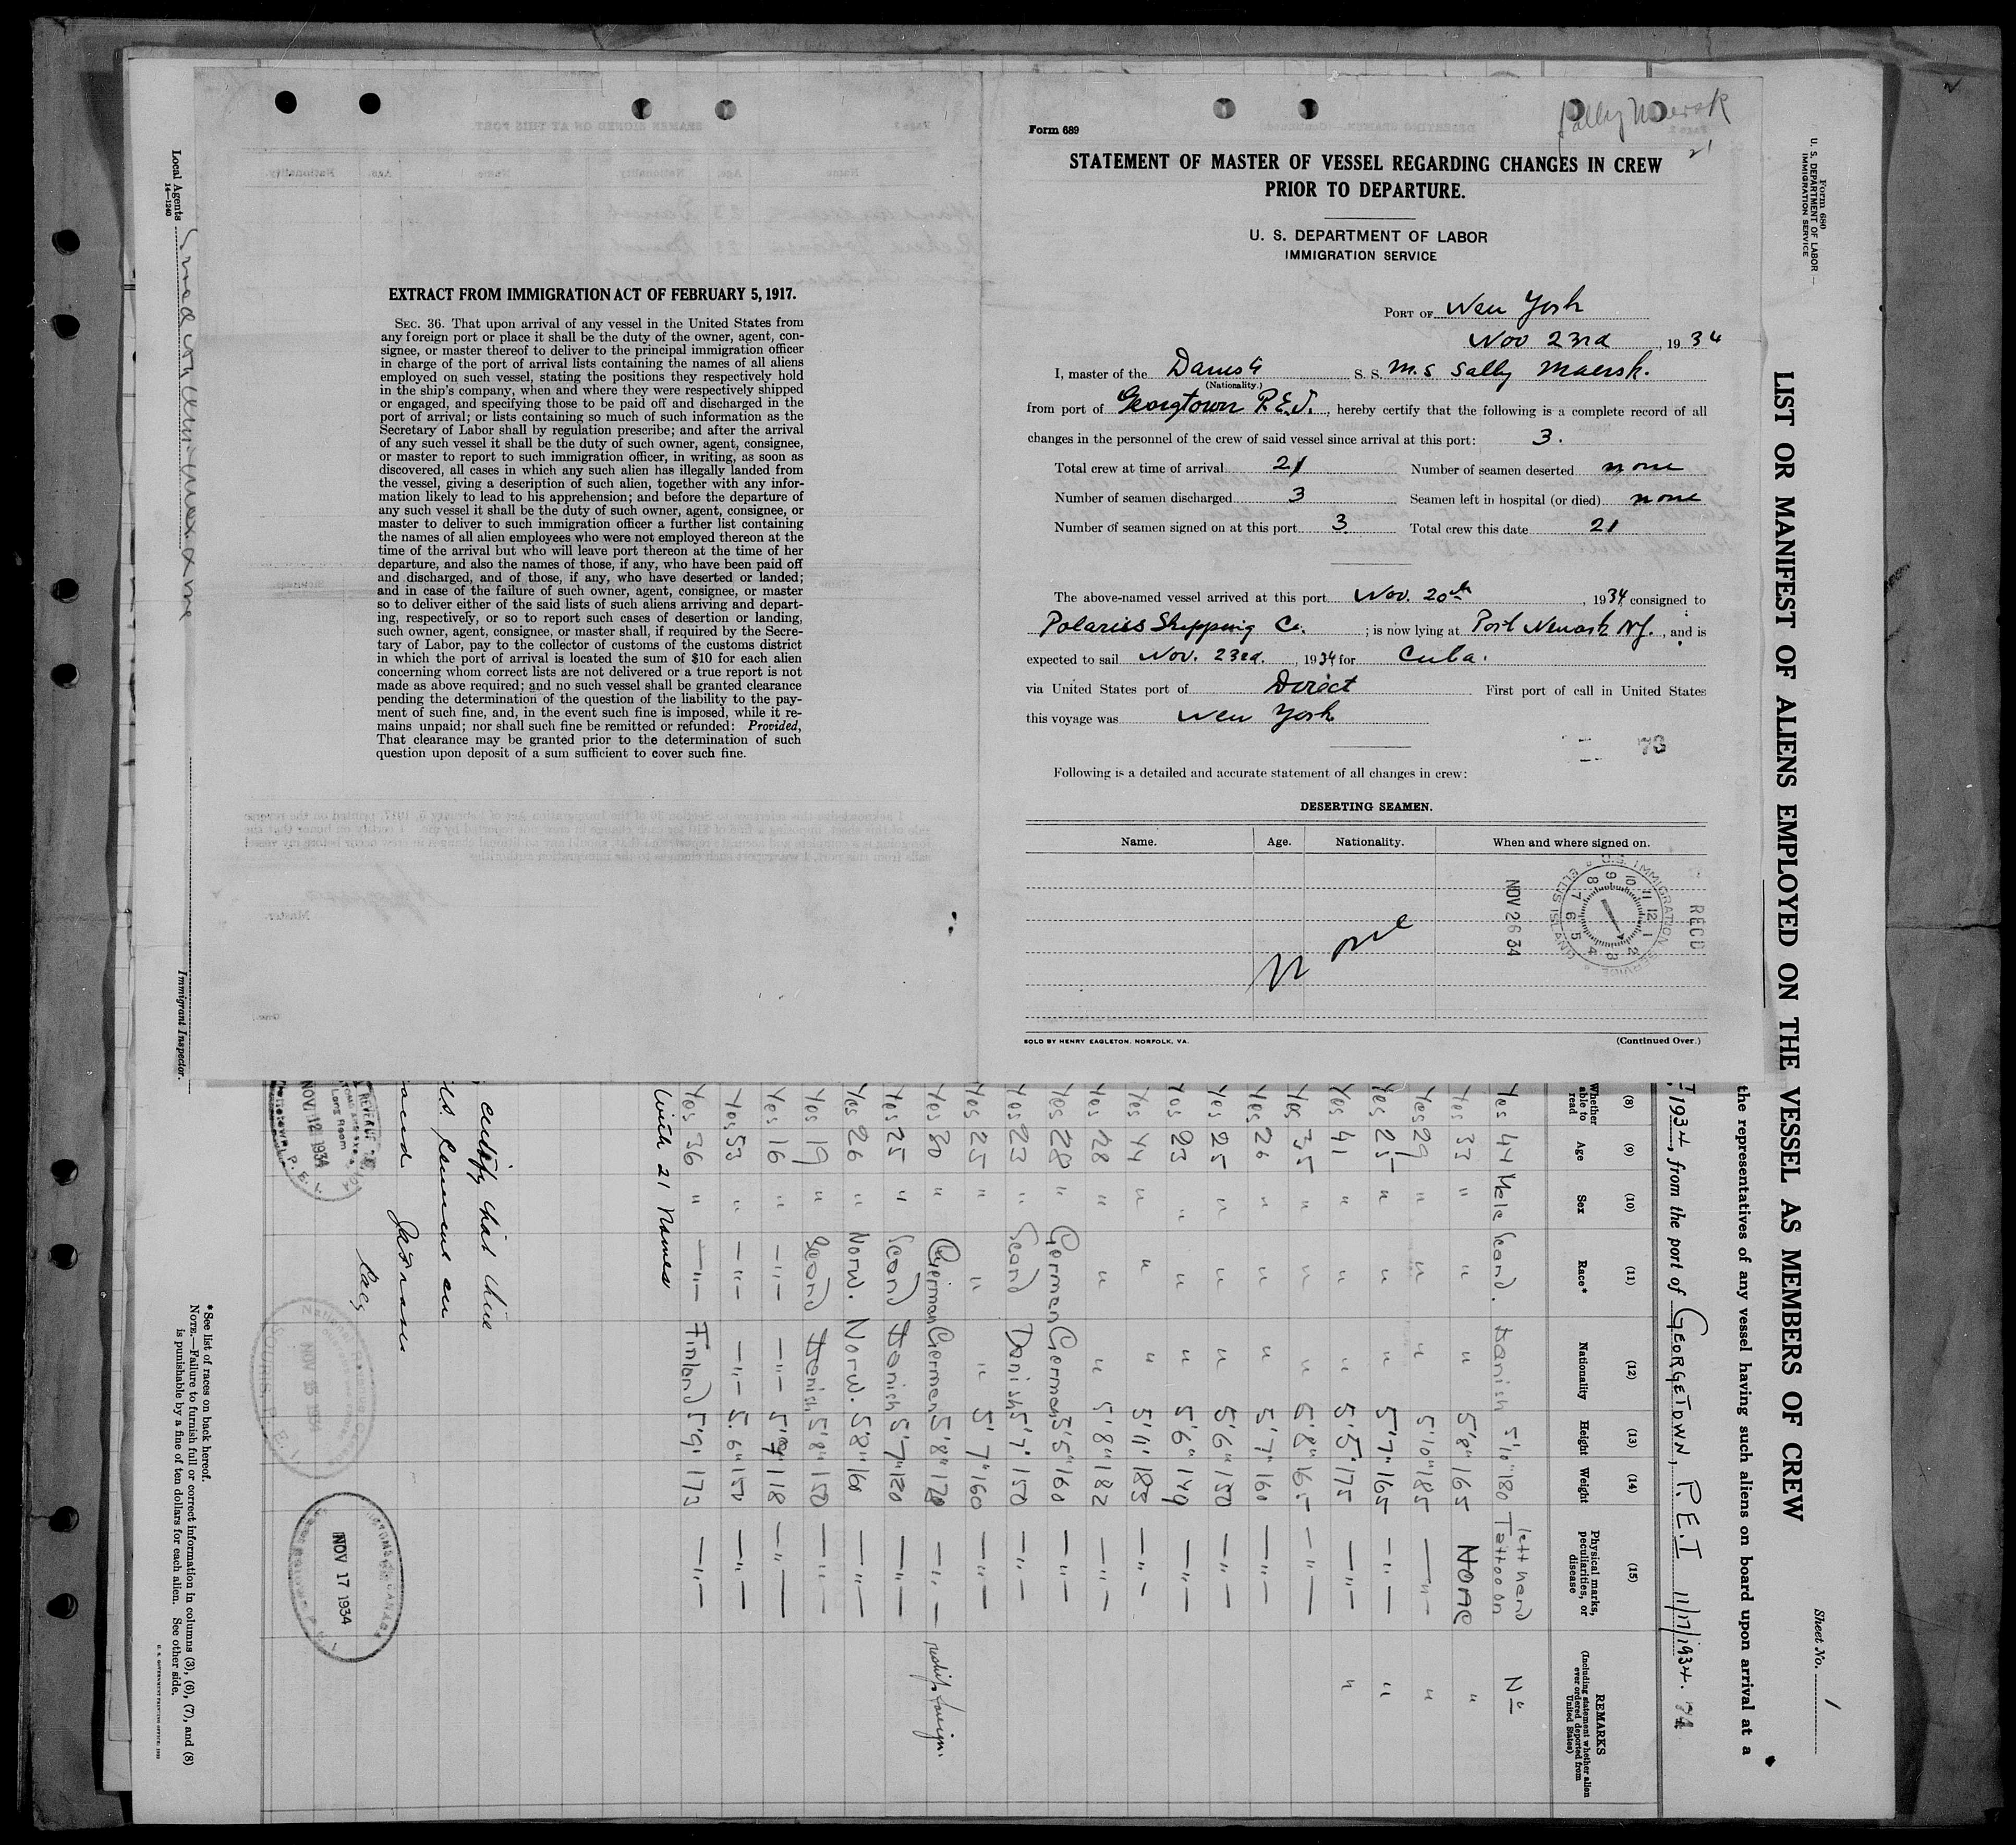 Sally Maersk
21
Form 689
STATEMENT OF MASTER OF VESSEL REGARDING CHANGES IN CREW
PRIOR TO DEPARTURE.
U. S. DEPARTMENT OF LABOR
IMMIGRATION SERVICE
PORT OF New York
Nov 23rd, 1934
I, master of the Danish S. S. M.S Sally Maersk.
(Nationality.)
from port of Georgtown P.E.I., hereby certify that the following is a complete record of all
changes in the personnel of the crew of said vessel since arrival at this port: 3.
Total crew at time of arrival 21 Number of seamen deserted none
Number of seamen discharged 3 Seamen left in hospital (or died) none
Number of seamen signed on at this port 3. Total crew this date 21
The above-named vessel arrived at this port Nov. 20th, 1934 consigned to
Polariss Shipping Co. ; is now lying at Port Newark NJ., and is
expected to sail Nov. 23rd., 1934 for Cuba.
via United States port of Direct First port of call in United States
this voyage was New York
73
Following is a detailed and accurate statement of all changes in crew:
DESERTING SEAMEN.
Name. Age. Nationality. When and where signed on.
None
NOV 26 34
RECD
U.S. IMMIGRATION SERVICE
ELLIS ISLAND
SOLD BY HENRY EAGLETON, NORFOLK, VA.
(Continued Over.)
EXTRACT FROM IMMIGRATION ACT OF FEBRUARY 5, 1917.
SEC. 36. That upon arrival of any vessel in the United States from
any foreign port or place it shall be the duty of the owner, agent, con-
signee, or master thereof to deliver to the principal immigration officer
in charge of the port of arrival lists containing the names of all aliens
employed on such vessel, stating the positions they respectively hold
in the ship's company, when and where they were respectively shipped
or engaged, and specifying those to be paid off and discharged in the
port of arrival; or lists containing so much of such information as the
Secretary of Labor shall by regulation prescribe; and after the arrival
of any such vessel it shall be the duty of such owner, agent, consignee,
or master to report to such immigration officer, in writing, as soon as
discovered, all cases in which any such alien has illegally landed from
the vessel, giving a description of such alien, together with any infor-
mation likely to lead to his apprehension; and before the departure of
any such vessel it shall be the duty of such owner, agent, consignee, or
master to deliver to such immigration officer a further list containing
the names of all alien employees who were not employed thereon at the
time of the arrival but who will leave port thereon at the time of her
departure, and also the names of those, if any, who have been paid off
and discharged, and of those, if any, who have deserted or landed;
and in case of the failure of such owner, agent, consignee, or master
so to deliver either of the said lists of such aliens arriving and depart-
ing, respectively, or so to report such cases of desertion or landing,
such owner, agent, consignee, or master shall, if required by the Secre-
tary of Labor, pay to the collector of customs of the customs district
in which the port of arrival is located the sum of $10 for each alien
concerning whom correct lists are not delivered or a true report is not
made as above required; and no such vessel shall be granted clearance
pending the determination of the question of the liability to the pay-
ment of such fine, and, in the event such fine is imposed, while it re-
mains unpaid; nor shall such fine be remitted or refunded: Provided,
That clearance may be granted prior to the determination of such
question upon deposit of a sum sufficient to cover such fine.
Form 680
U. S. DEPARTMENT OF LABOR
IMMIGRATION SERVICE
Sheet No. 1
LIST OR MANIFEST OF ALIENS EMPLOYED ON THE VESSEL AS MEMBERS OF CREW
the representatives of any vessel having such aliens on board upon arrival at a
1934, from the port of GEORGETOWN, P.E.I 11/17/1934.
(8) (9) (10) (11) (12) (13) (14) (15)
Whether able to read Age Sex Race* Nationality Height Weight Physical marks, peculiarities, or disease REMARKS (Including statement whether alien ever ordered deported from United States)
Yes 44 Male Scand. Danish 5'10" 180 Tattoo on left hand No
Yes 33 " " " 5'8" 165 None "
Yes 29 " " " 5'10" 185 — " — "
Yes 25 " " " 5'7" 165 — " — "
Yes 41 " " " 5'5" 175 — " — "
Yes 35 " " " 5'8" 165 — " —
Yes 26 " " " 5'7" 160 — " —
Yes 25 " " " 5'6" 150 — " —
Yes 23 " " " 5'6" 149 — " —
Yes 44 " " " 5'11" 183 — " —
Yes 28 " " " 5'8" 182 — " —
Yes 28 " German German 5'5" 160 — " —
Yes 23 " Scand Danish 5'7" 150 — " —
Yes 25 " " " 5'7" 160 — " —
Yes 30 " German German 5'8" 170 — " —
Yes 25 " Scand Danish 5'7" 120 — " —
Yes 26 " Norw. Norw. 5'8" 160 — " —
Yes 19 " Scand Danish 5'8" 150 — " —
Yes 16 " — " — — " — 118 — " —
Yes 53 " — " — — " — 5'6" 150 — " —
Yes 36 " — " — Finland 5'9" 173 — " —
With 21 Names
certify that this
NOV 12 1934
NOV 15 1934
SOURIS, P. E. I.
NOV 17 1934
*See list of races on back hereof.
NOTE.—Failure to furnish full or correct information in columns (3), (6), (7), and (8)
is punishable by a fine of ten dollars for each alien. See other side.
U. S. GOVERNMENT PRINTING OFFICE
Local Agents
14—1240
Immigrant Inspector.